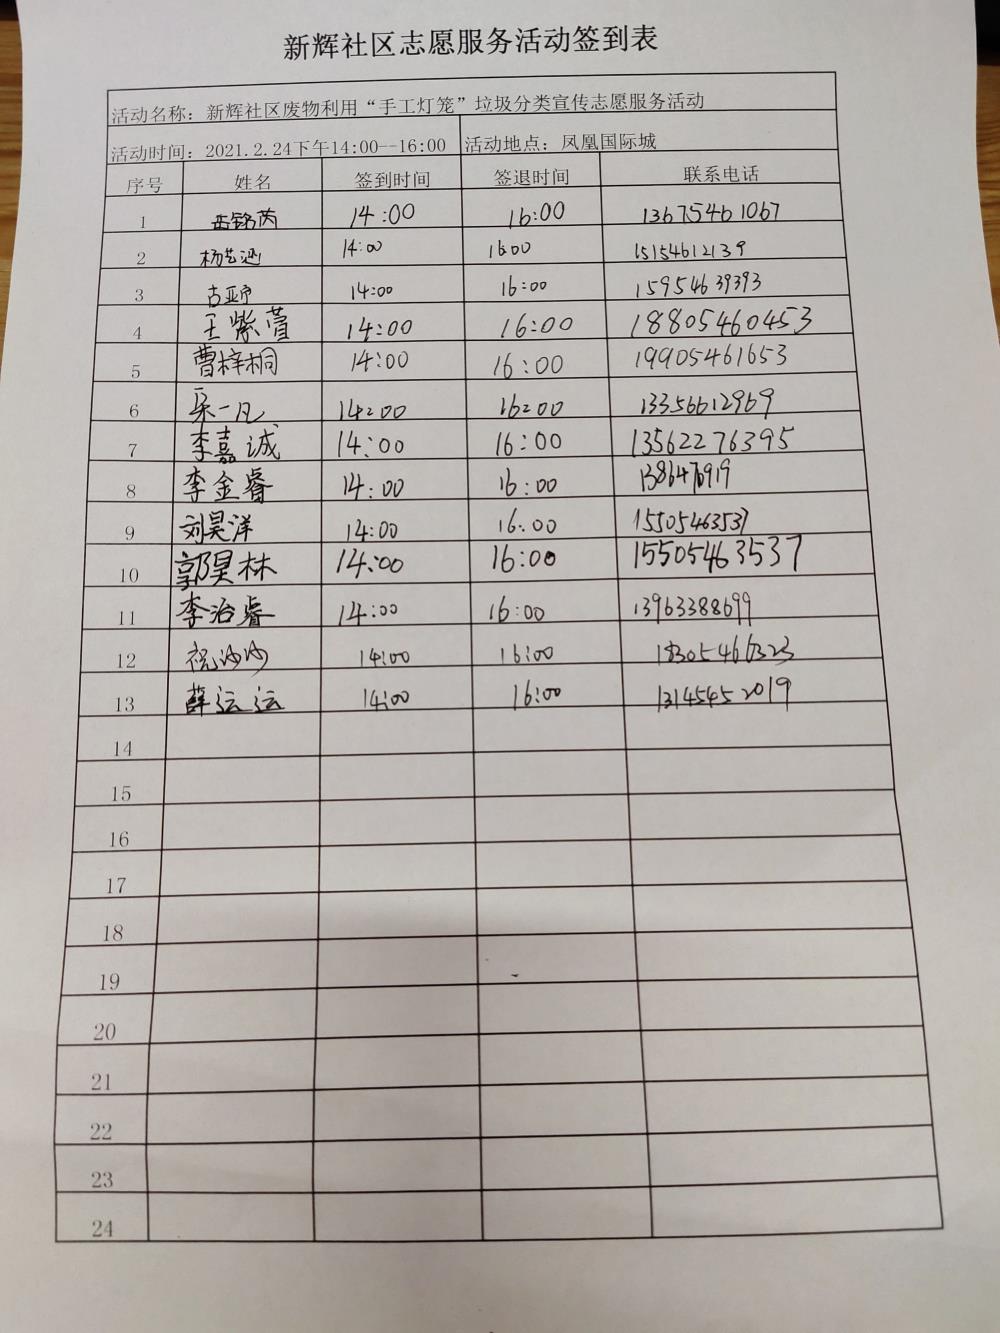 新辉社区志愿服务活动签到表
活动名称：新辉社区废物利用“手工灯笼”垃圾分类宣传志愿服务活动
活动时间：2021.2.24下午14:00--16:00 活动地点：凤凰国际城
序号 姓名 签到时间 签退时间 联系电话
1 14:00 16:00 13675461067
2 杨艺涵 14:00 16:00 15154612139
3 14:00 16:00 15954639393
4 王紫萱 14:00 16:00 18805460453
5 曹梓桐 14:00 16:00 19905461653
6 一凡 14:00 16:00 13356612969
7 李嘉诚 14:00 16:00 13562276395
8 李金睿 14:00 16:00
9 刘昊洋 14:00 16:00 15505463537
10 郭昊林 14:00 16:00 15505463537
11 李治睿 14:00 16:00 13963388699
12 祝沙沙 14:00 16:00 18305466323
13 薛运运 14:00 16:00 13145452019
14
15
16
17
18
19
20
21
22
23
24